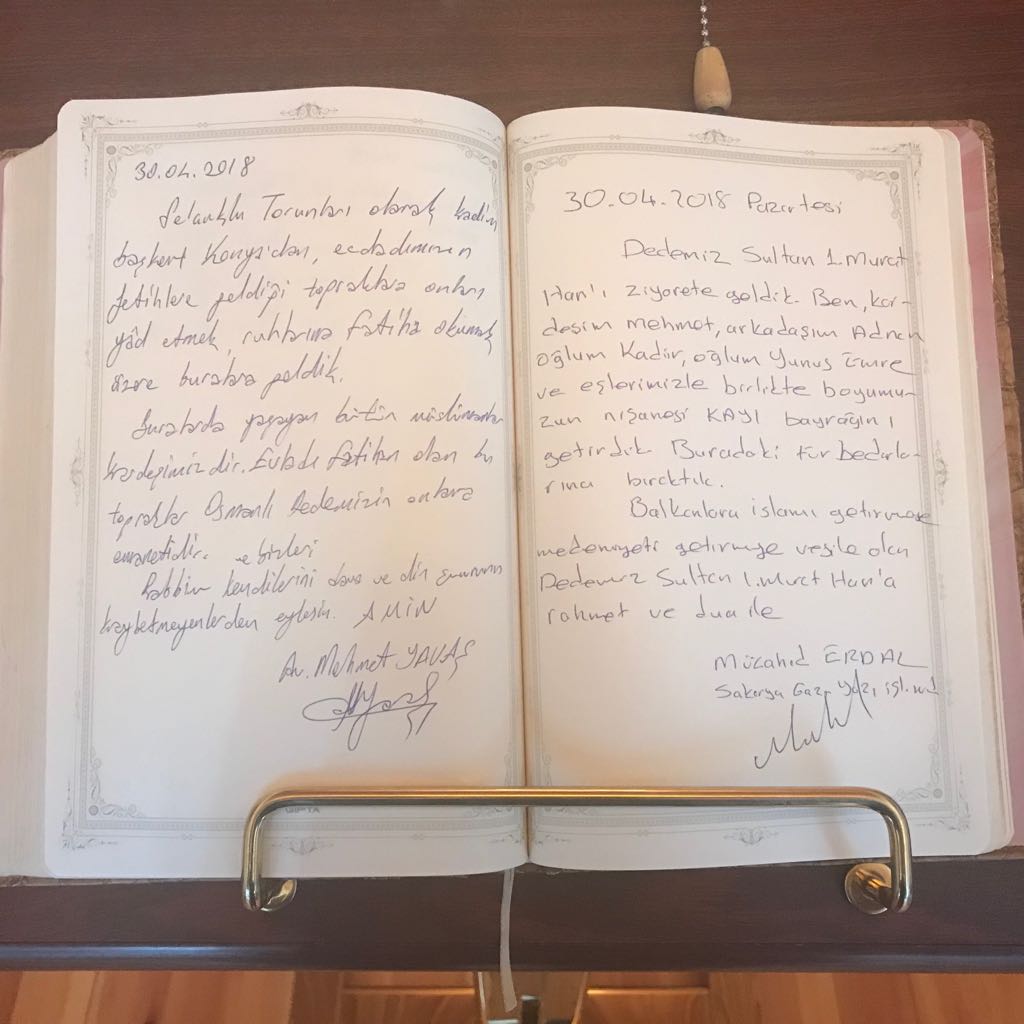 30.04.2018
Selçuklu Torunları olarak kadim
başkent Konya'dan, ecdadımızın
fetihlere geldiği topraklara onları
yâd etmek, ruhlarına fatiha okumak
üzere buralara geldik.
Buralarda yaşayan bütün müslümanlar
kardeşimizdir. Evladı fatihan olan bu
topraklar Osmanlı Dedemizin onlara
emanetidir. ve bizleri
Rabbim kendilerini dava ve din
kaybetmeyenlerden eylesin. AMİN
Av. Mehmet YAVAŞ
30.04.2018 Pazartesi
Dedemiz Sultan 1. Murat
Han'ı ziyarete geldik. Ben, kar-
deşim Mehmet, arkadaşım Adnan
oğlum Kadir, oğlum Yunus Emre
ve eşlerimizle birlikte boyumu-
zun nişanesi KAYI bayrağını
getirdik Buradaki türbedarla-
rına bıraktık.
Balkanlara islamı getirmeye
medeniyeti getirmeye vesile olan
Dedemiz Sultan 1. Murat Han'a
rahmet ve dua ile
Mücahid ERDAL
Sakarya Gaz. Yazı işl. müd